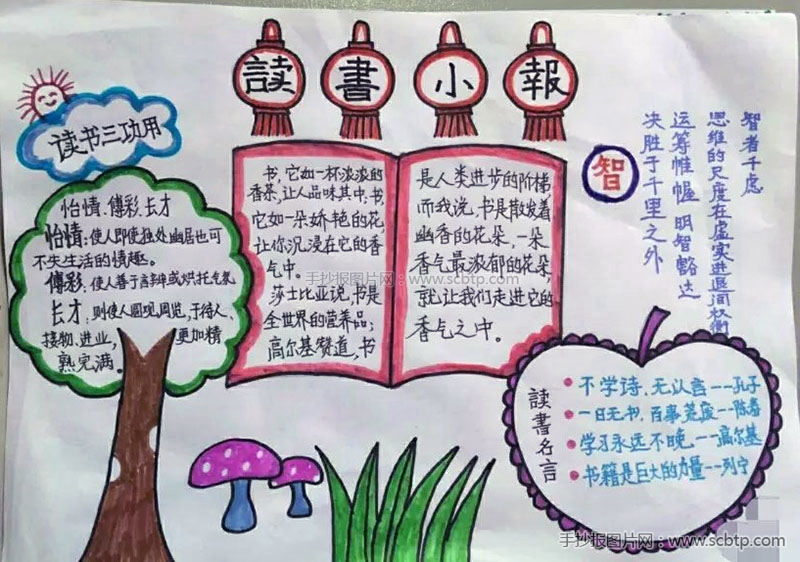 讀書小報
读书三功用
怡情、傅彩、长才
怡情:使人即使独处幽居也可
不失生活的情趣。
傅彩:使人善于言辞或烘托气氛
长才:则使人圆观周览,于待人、
接物、进业,更加精
熟完满。
书,它如一杯浓浓的
香茶,让人品味其中,书,
它如一朵娇艳的花,
让你沉浸在它的香
气中。
莎士比亚说,书是
全世界的营养品;
高尔基赞道,书
是人类进步的阶梯
而我说,书是散发着
幽香的花朵,一朵
香气最浓郁的花朵,
就让我们走进它的
香气之中。
手抄报图片网:www.scbtp.com
智
智者千虑
思维的尺度在虚实进退间权衡
运筹帷幄 明智豁达
决胜于千里之外
读書名言
不学诗、无以言——孔子
一日无书,百事荒废——陈寿
学习永远不晚——高尔基
书籍是巨大的力量——列宁
手抄报图片网:www.scbtp.com